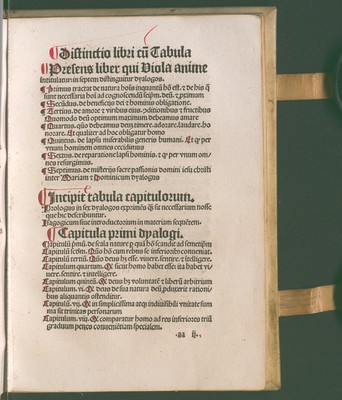 ¶Distinctio libri cū Tabula
¶Presens liber qui Viola anime
intitulatur: in septem distinguitur dyalogos.
¶Primus tractat de natura hoīs inquantū hō est. et de his q̄
sunt necessaria hoī ad cognoscendū seipm̄. deū. et primum
¶Secūdus. de beneficijs dei et hominis obligatione.
¶Tertius. de amore et vnius eiusq. pditionibus et fructibus
Quomodo deū optimum maximum debeamus amare
¶Quartus. quō debeamus deū timere. adorare. laudare. ho
norare. Et qualiter ad hoc obligatur homo
¶Quintus. de lapsu miserabilis generis humani. Et qꝫ per
vnum hominem omnes cecidimus
¶Sextus. de reparatione lapsi hominis. et qꝫ per vnum om-
nes resurgimus.
¶Septimus. de misterijs sacre passionis domini iesu christi
inter Mariam et Dominicum dyalogus
¶Incipit tabula capitulorum.
Prologus in sex dyalogos exprimēs q̄ sit necessarium nosse
que hic describuntur.
Isagogicum siue introductorium in materiam sequētem.
¶Capitula primi dyalogi.
Capitulū pmū. de scala nature p quā hō scandit ad semetipm̄
Capitulū scdm̄. Quō hō cum rebus se inferioribꝰ conueniat.
Capitulū tertiū. Quō deus hꝫ esse. viuere. sentire. et intelligere.
Capitulum quartum. Qꝫ sicut homo habet esse: ita habet vi-
uere. sentire. et intelligere.
Capitulum quintū. Qꝫ deus hꝫ voluntatē et liberū arbitrium
Capitulum. vi. Qꝫ deus de sua natura deū pducat rationi-
bus aliquantis ostenditur.
Capitulū. vij. Qꝫ in simplicissima atqꝫ indiuisibili vnitate sum
ma sit trinitas personarum
Capitulum. viij. Qꝫ comparatur homo ad res inferiores triū
graduum penes conuenientiam specialem.
aa ij